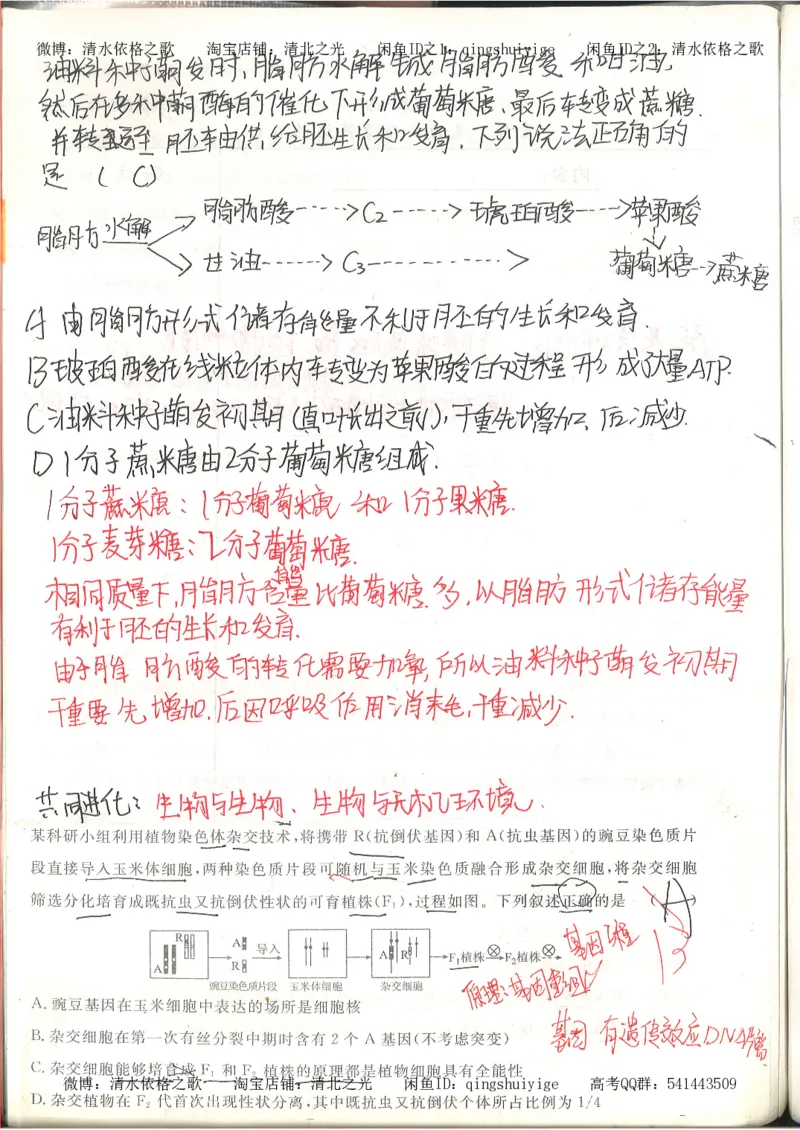 微博：清水依格之歌 淘宝店铺：清北之光 闲鱼ID之1：qingshuiyige 闲鱼ID之2：清水依格之歌
油料种子萌发时,脂肪水解生成脂肪酸和甘油,
然后在多种酶的催化下形成葡萄糖,最后转变成蔗糖.
并转运至胚轴供给胚生长和发育.下列说法正确的
是 ( C )
脂肪酸 C2 琥珀酸 苹果酸
脂肪 水解
甘油 C3 葡萄糖 蔗糖
A 由脂肪形式储存能量不利于胚的生长和发育.
B 琥珀酸在线粒体内转变为苹果酸的过程形成了大量ATP.
C 油料种子萌发初期(真叶长出之前),干重先增加、后减少.
D 1分子蔗糖由2分子葡萄糖组成.
1分子蔗糖:1分子葡萄糖和1分子果糖.
1分子麦芽糖:2分子葡萄糖.
相同质量下,脂肪含能量比葡萄糖多,以脂肪形式储存能量
有利于胚的生长和发育.
由于脂肪酸的转化需要加氧,所以油料种子萌发初期
干重要先增加.后因呼吸作用消耗,干重减少.
共同进化: 生物与生物、生物与无机环境.
某科研小组利用植物染色体杂交技术,将携带 R(抗倒伏基因)和 A(抗虫基因)的豌豆染色质片
段直接导入玉米体细胞,两种染色质片段可随机与玉米染色质融合形成杂交细胞,将杂交细胞
筛选分化培育成既抗虫又抗倒伏性状的可育植株(F₁),过程如图。下列叙述正确的是 ( A )
B
R A 导入 A R F₁植株 ⊗ F₂植株 ⊗
A R
豌豆染色质片段 玉米体细胞 杂交细胞
原理:基因重组
A. 豌豆基因在玉米细胞中表达的场所是细胞核
基因 有遗传效应DNA片段
B. 杂交细胞在第一次有丝分裂中期时含有 2 个 A 基因(不考虑突变)
C. 杂交细胞能够培育成 F₁ 和 F₂ 植株的原理都是植物细胞具有全能性
微博：清水依格之歌 淘宝店铺：清北之光 闲鱼ID：qingshuiyige 高考QQ群：541443509
D. 杂交植物在 F₂ 代首次出现性状分离,其中既抗虫又抗倒伏个体所占比例为 1/4